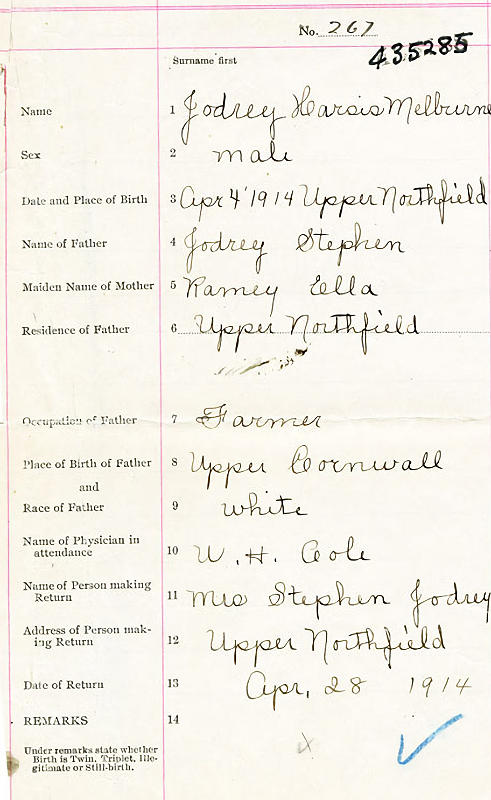 No. 267
435285
Surname first
Name 1 Jodrey Harsis Melburne
Sex 2 male
Date and Place of Birth 3 Apr 4' 1914 Upper Northfield
Name of Father 4 Jodrey Stephen
Maiden Name of Mother 5 Ramey Ella
Residence of Father 6 Upper Northfield
Occupation of Father 7 Farmer
Place of Birth of Father 8 Upper Cornwall
and
Race of Father 9 white
Name of Physician in
attendance 10 W. H. Cole
Name of Person making
Return 11 Mrs Stephen Jodrey
Address of Person mak-
ing Return 12 Upper Northfield
Date of Return 13 Apr, 28 1914
REMARKS 14
Under remarks state whether
Birth is Twin, Triplet, Ille-
gitimate or Still-birth.